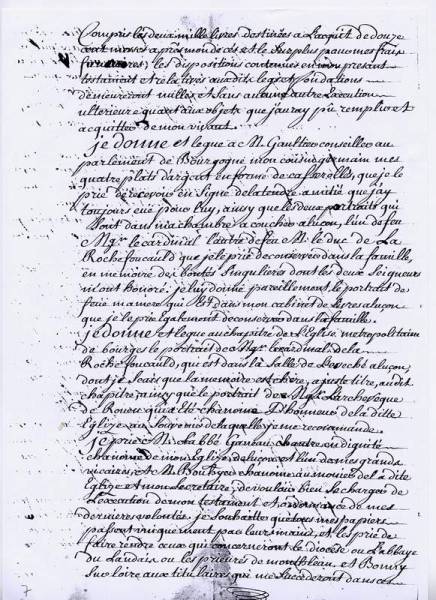 Compris les deux mille livres destinées a l'acquit de douze
cent messes après mon decés et le surplus pour mes frais
funeraires) les dispositions contenues en mon present
testament et relatives auxdits legs et fondations
demeureront nulles et sans aucune autre execution
ulterieure quant aux objets que j'auray pû remplir et
acquitter de mon vivant.
je donne et legue a M. Gaultier conseiller au
parlement de Bourgogne mon cousin germain mes
quatre plats d'argent en forme de casserolles, que je le
prie de recevoir en signe de la tendre amitié que j'ay
toujours eüe pour luy, ainsy que les deux portraits qui
sont dans ma chambre a coucher a luçon, l'un de feu
Mgr. le cardinal l'autre de feu M. le duc de La
Rochefoucauld que je le prie de conserver dans la famille,
en memoire des bontés singulieres dont les deux seigneurs
m'ont honoré. je luy donne pareillement le portrait de
feüe ma mere qui est dans mon cabinet de livres a luçon
que je le prie egalement de conserver dans la famille.
je donne et legue au chapitre de l'Eglise metropolitaine
de bourges le portrait de Mgr. le cardinal de la
Rochefoucauld, qui est dans la salle de l'evêché a luçon,
dont je sçais que la memoire est chere, a juste titre, audit
chapitre, ainsy que le portrait de Mgr. l'archevêque
de Rouen qui a été chanoine d'honneur de la ditte
Eglise au souvenir de laquelle je me recommande.
je prie M. l'abbé Gandan chantre en dignité
chanoine de mon Eglise de luçon et l'un de mes grands
vicaires, et M. chanoine aumonier de la dite
Eglise et mon secretaire, de vouloir bien se charger de
l'execution de mon testament et ordonnance de mes
dernieres volontés. je souhaitte que tous mes papiers
passent uniquement par leurs mains, et les prie de
faire rendre ceux qui concerneront le diocese ou l'abbaye
du Landais, ou les prieurés de et Bonny
sur loire aux titulaires qui me succederont dans ces